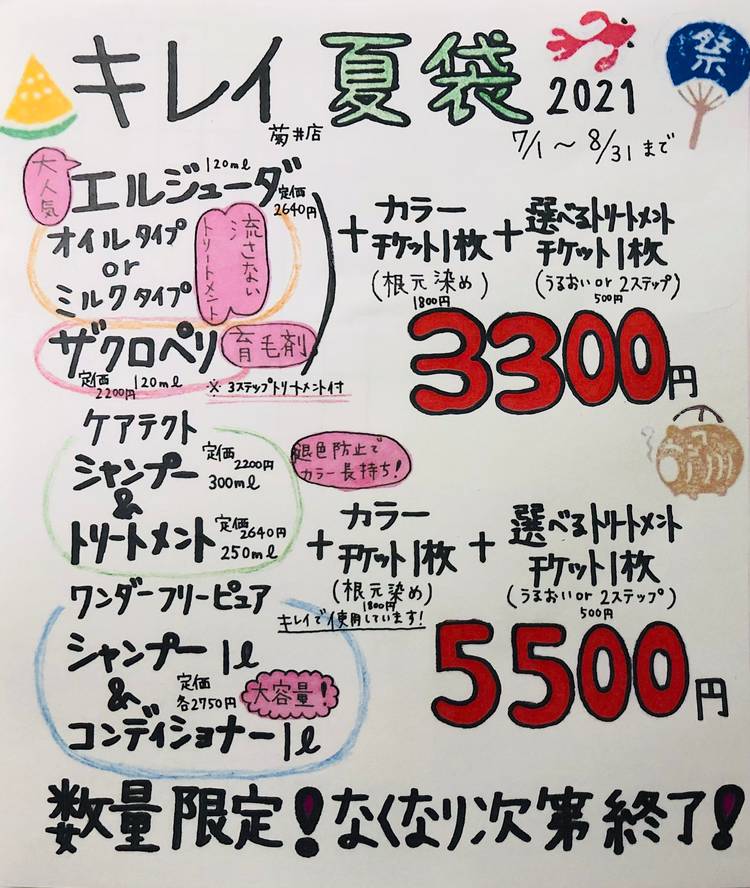 キレイ 夏袋 2021
祭
菊井店
7/1～8/31まで
大人気
エルジューダ 120ml
定価
2640円
オイルタイプ
or
ミルクタイプ
流さない
トリートメント
ザクロペリ 育毛剤
定価
2200円
120ml
※3ステップトリートメント付
+カラー
チケット1枚
(根元染め)
1800円
+選べるトリートメント
チケット1枚
(うるおいor2ステップ)
500円
3300円
ケアテクト
シャンプー
定価
2200円
300ml
&
トリートメント
定価
2640円
250ml
退色防止で
カラー長持ち!
ワンダーフリーピュア
シャンプー 1l
&
定価
各2750円
大容量!
コンディショナー 1l
+カラー
チケット1枚
(根元染め)
1800円
キレイで使用しています!
+選べるトリートメント
チケット1枚
(うるおいor2ステップ)
500円
5500円
数量限定!なくなり次第終了!